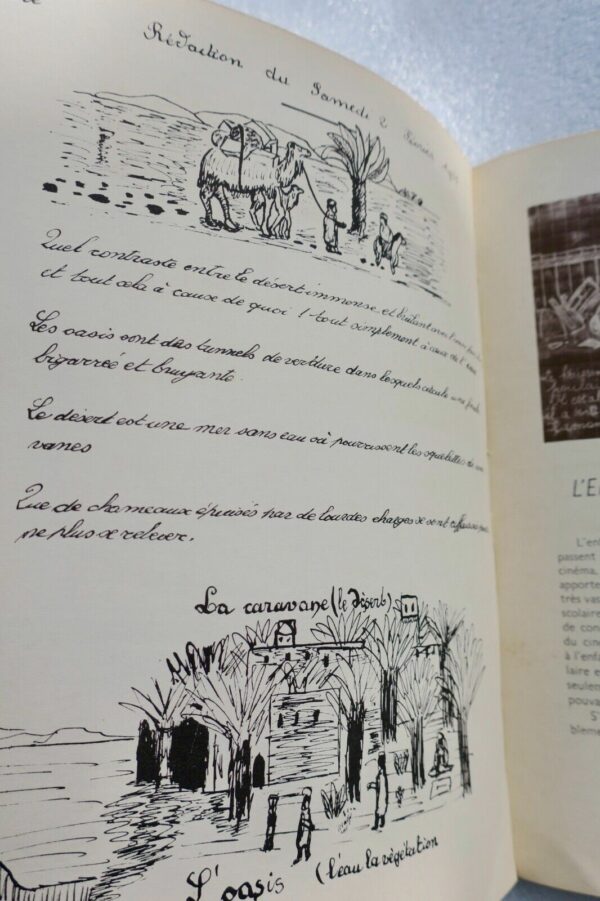 Rédaction du Samedi 2 Février
Quel contraste entre le désert immense et brûlant avec
et tout cela à cause de quoi ! tout simplement à cause de l'eau
Les oasis sont des tunnels de verdure dans lesquels circule une foule
bigarrée et bruyante.
Le désert est une mer sans eau où pourrissent les squelettes de
vanes
Que de chameaux épuisés par de lourdes charges se sont
ne plus se relever.
La caravane (le désert)
L'oasis (l'eau la végétation
L'E
L'enf
passent
cinéma,
apporte
très vas
scolaire
de con
du cin
à l'enfa
laire e
seulen
pouva
S'
blemen